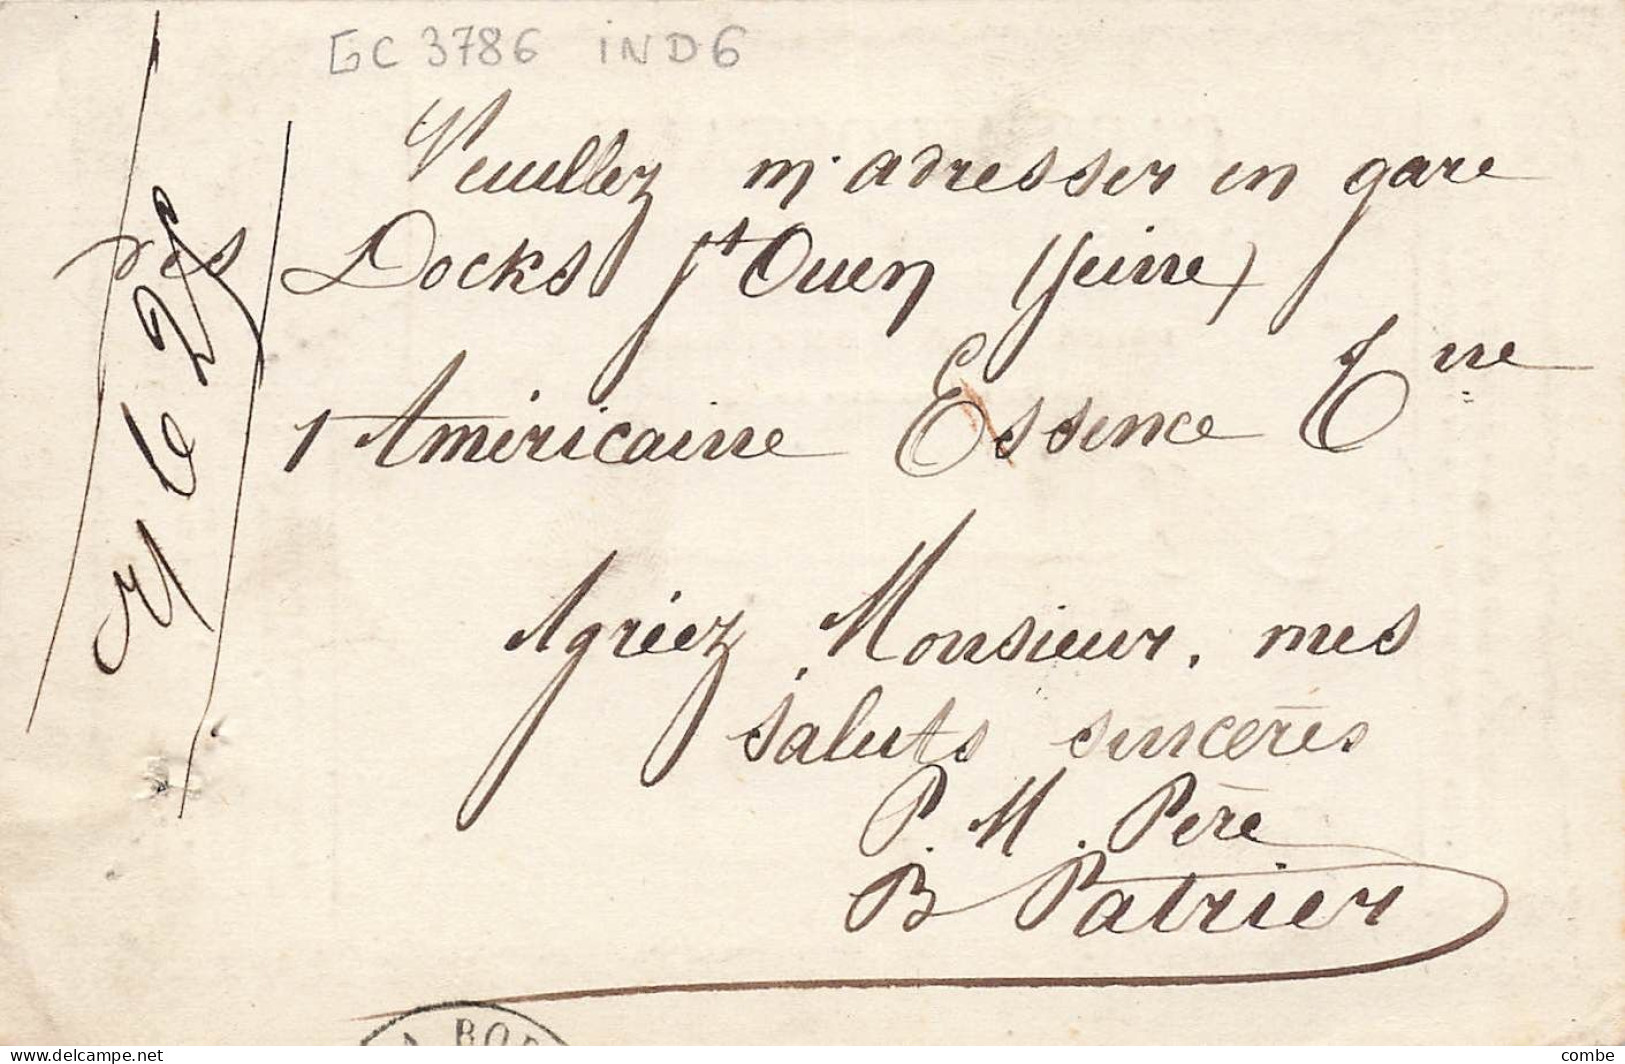 GC 3786 IND 6
Veuillez m'adresser en gare
des Docks St Ouen (Seine)
1 Américaine Essence Ene
Agréez, Monsieur, mes
saluts sincères
P. M. Père
B Patrier
A BOR
delcampe.net
combe